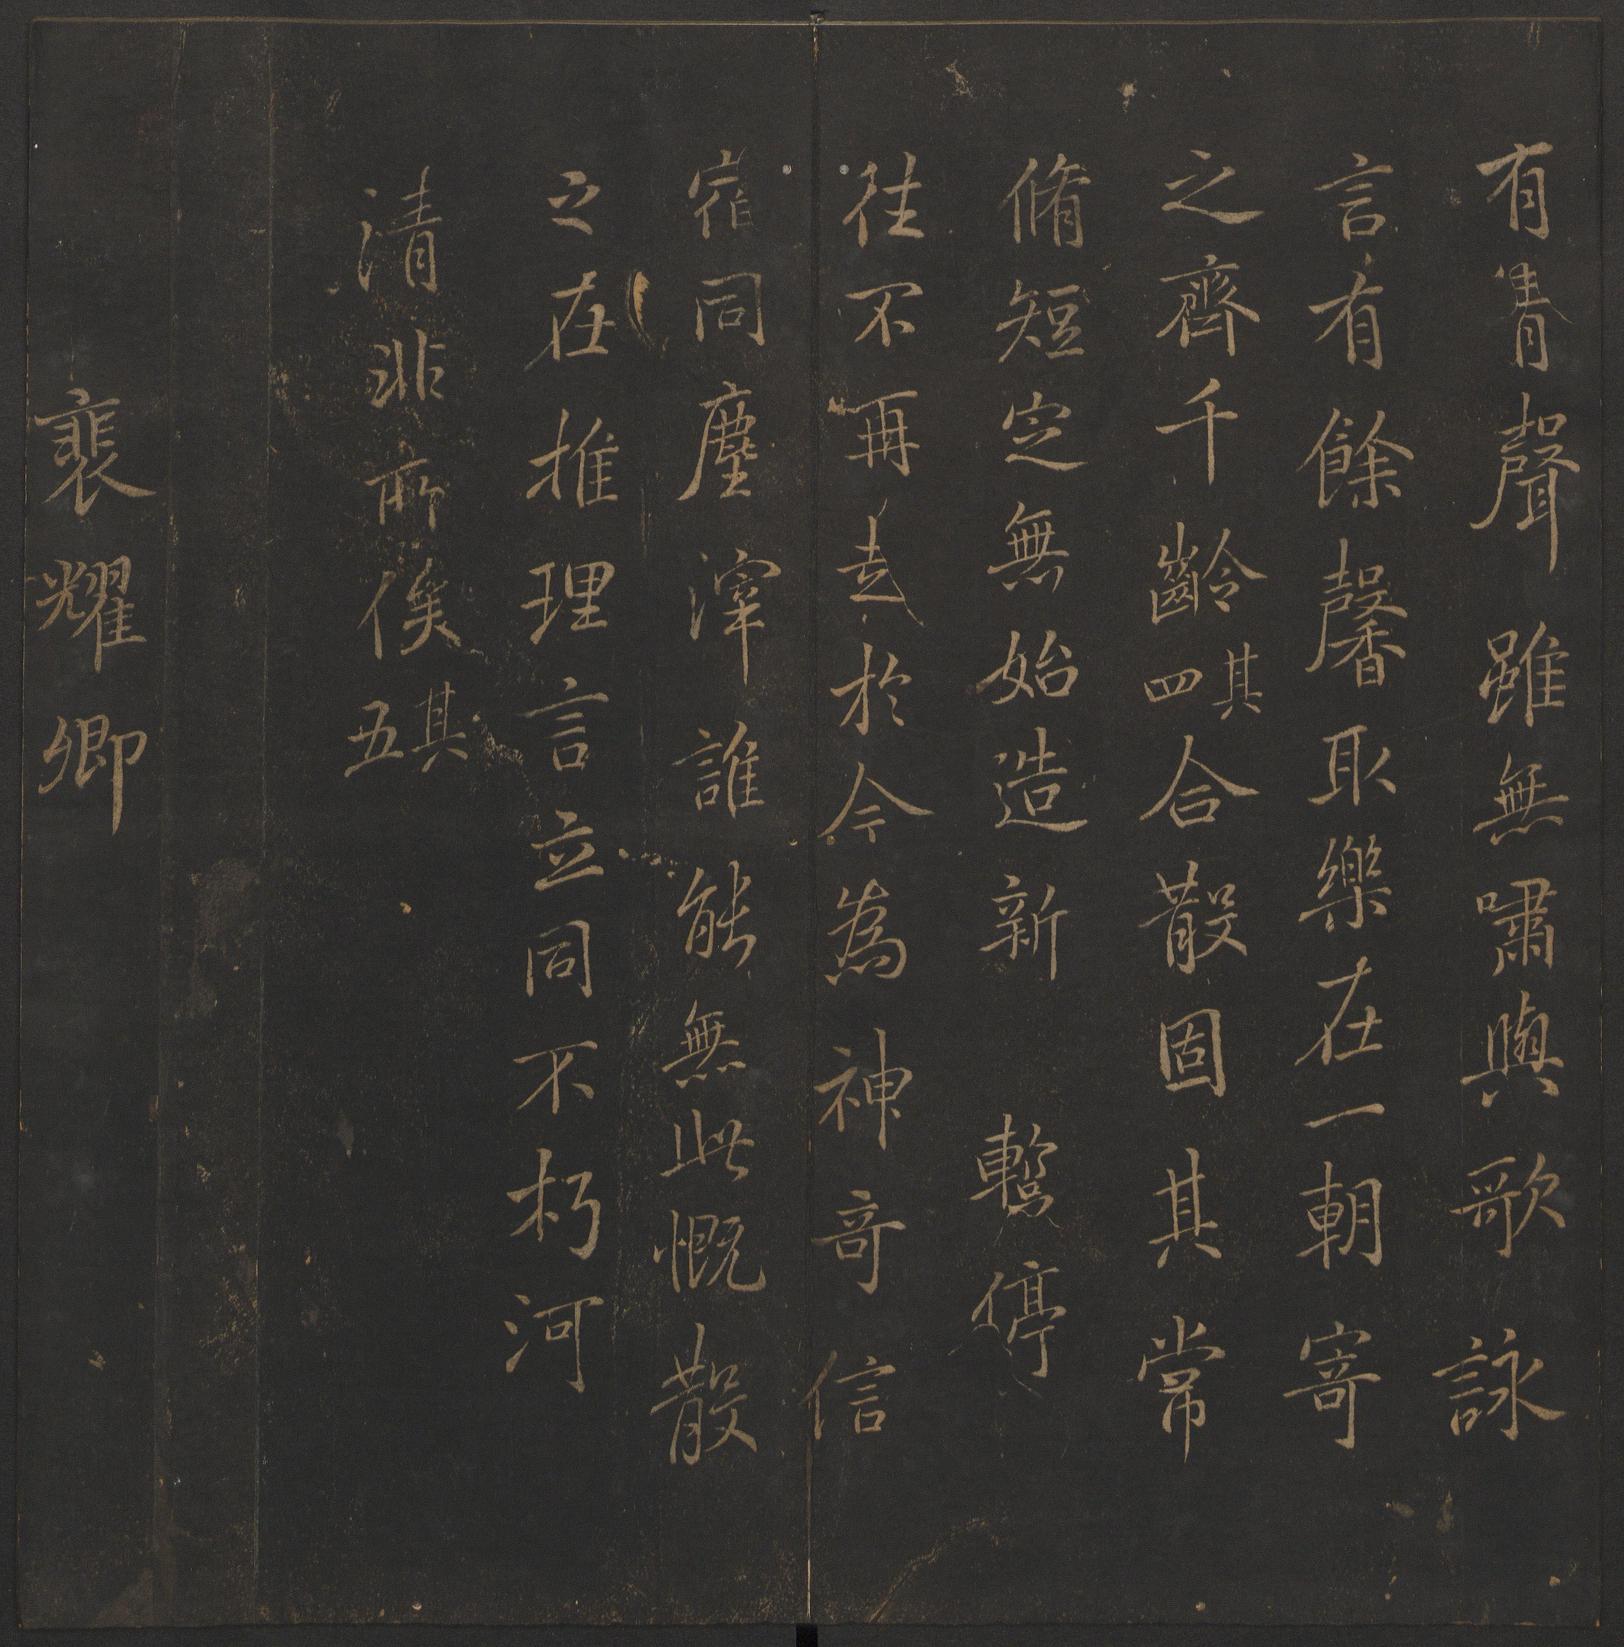 有清聲雖無嘯與歌詠
言有餘馨取樂在一朝寄
之齊千齡其四合散固其常
脩短定無始造新暫停
往不再起於今為神奇信
宿同塵滓誰能無此慨散
之在推理言立同不朽河
清非所俟其五
裴耀卿